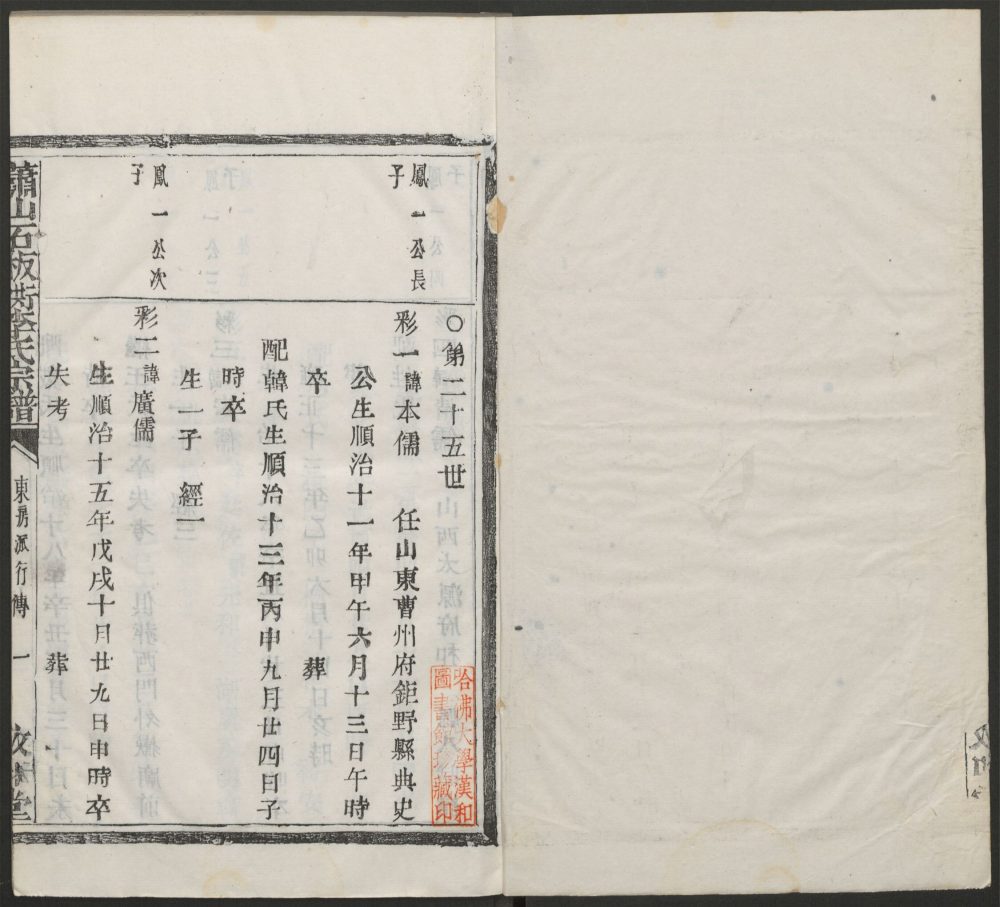 ○第二十五世
鳳一公長子
彩一諱本儒　任山東曹州府鉅野縣典史
公生順治十一年甲午六月十三日午時
卒　葬
配韓氏生順治十三年丙申九月廿四日子
時卒
生一子　經一
鳳一公次子
彩二諱廣儒
生順治十五年戊戌十月廿九日申時卒
失考　葬
蕭山石板衖李氏宗譜
東房派行傳　一
哈佛大學漢和
圖書館珍藏印